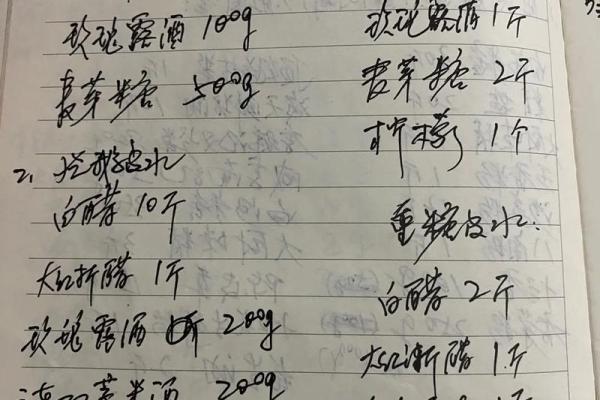 玫瑰露酒 100g
麦芽糖 500g
2、烧鹅皮水
白醋 10斤
大红浙醋 1斤
玫瑰露酒 200g
200g
玫瑰露酒 1斤
麦芽糖 2斤
柠檬 1个
重糖皮水:
白醋 2斤
大红浙醋 1斤